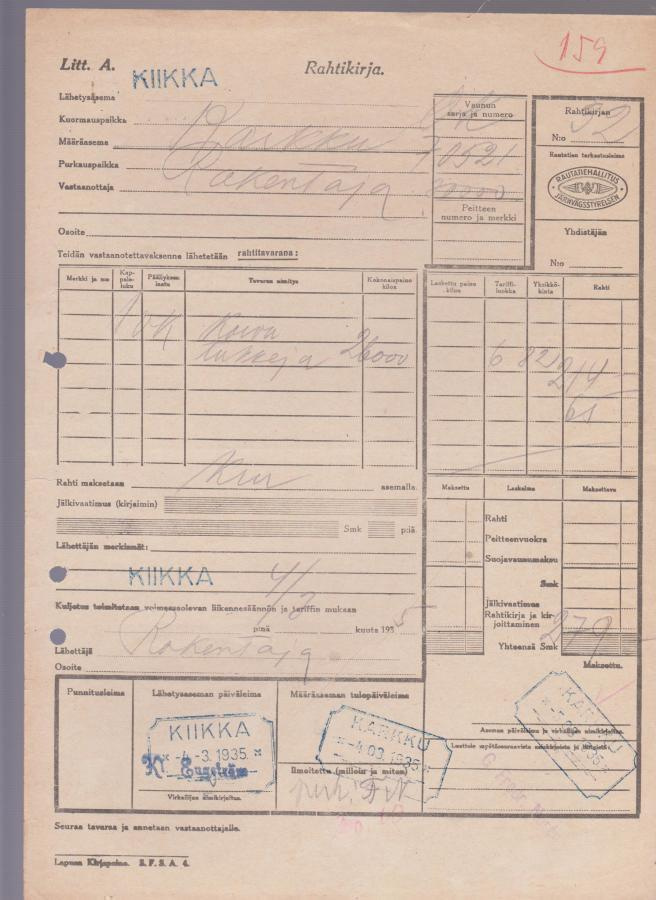 159
Litt. A.
KIIKKA
Rahtikirja.
Lähetysasema
Kuormauspaikka
Määräasema
Purkauspaikka
Vastaanottaja Rakentaja
Osoite
Vaunun
sarja ja numero
70521
Peitteen
numero ja merkki
Rahtikirjan
N:o 52
Rautatien tarkastusleima
RAUTATIEHALLITUS
JÄRNVÄGSSTYRELSEN
Yhdistäjän
N:o
Teidän vastaanotettavaksenne lähetetään rahtitavarana:
Merkki ja n:o
Kap-
pale-
luku
Päällyksen
laatu
Tavaran nimitys
Kokonaispaino
kiloa
Laskettu paino
kiloa
Tariffi-
luokka
Yksikkö-
hinta
Rahti
Koivu
tukkeja 26000
6 82 214
Rahti maksetaan asemalla.
Jälkivaatimus (kirjaimin)
Smk p:iä
Lähettäjän merkinnät:
Maksettu
Laskelma
Maksettava
Rahti
Peitteenvuokra
Suojavaunumaksu
Smk
Jälkivaatimus
Rahtikirja ja kir-
joittaminen
Yhteensä Smk 279
Maksettu.
KIIKKA 4/3
Kuljetus toimitetaan voimassaolevan liikennesäännön ja tariffin mukaan
p:nä kuuta 1935
Lähettäjä Rakentaja
Osoite
Punnitusleima
Lähetysaseman päiväleima
KIIKKA
* -4-3. 1935. *
Kl. Engström
Virkailijan nimikirjoitus.
Määräaseman tulopäiväleima
KARKKU
* -4.03. 1935 *
Ilmoitettu (milloin ja miten)
KARKKU
Aseman päiväleima ja virkailijan nimikirjoitus.
Seuraa tavaraa ja annetaan vastaanottajalle.
Lapuan Kirjapaino. S. F. S. A. 4.